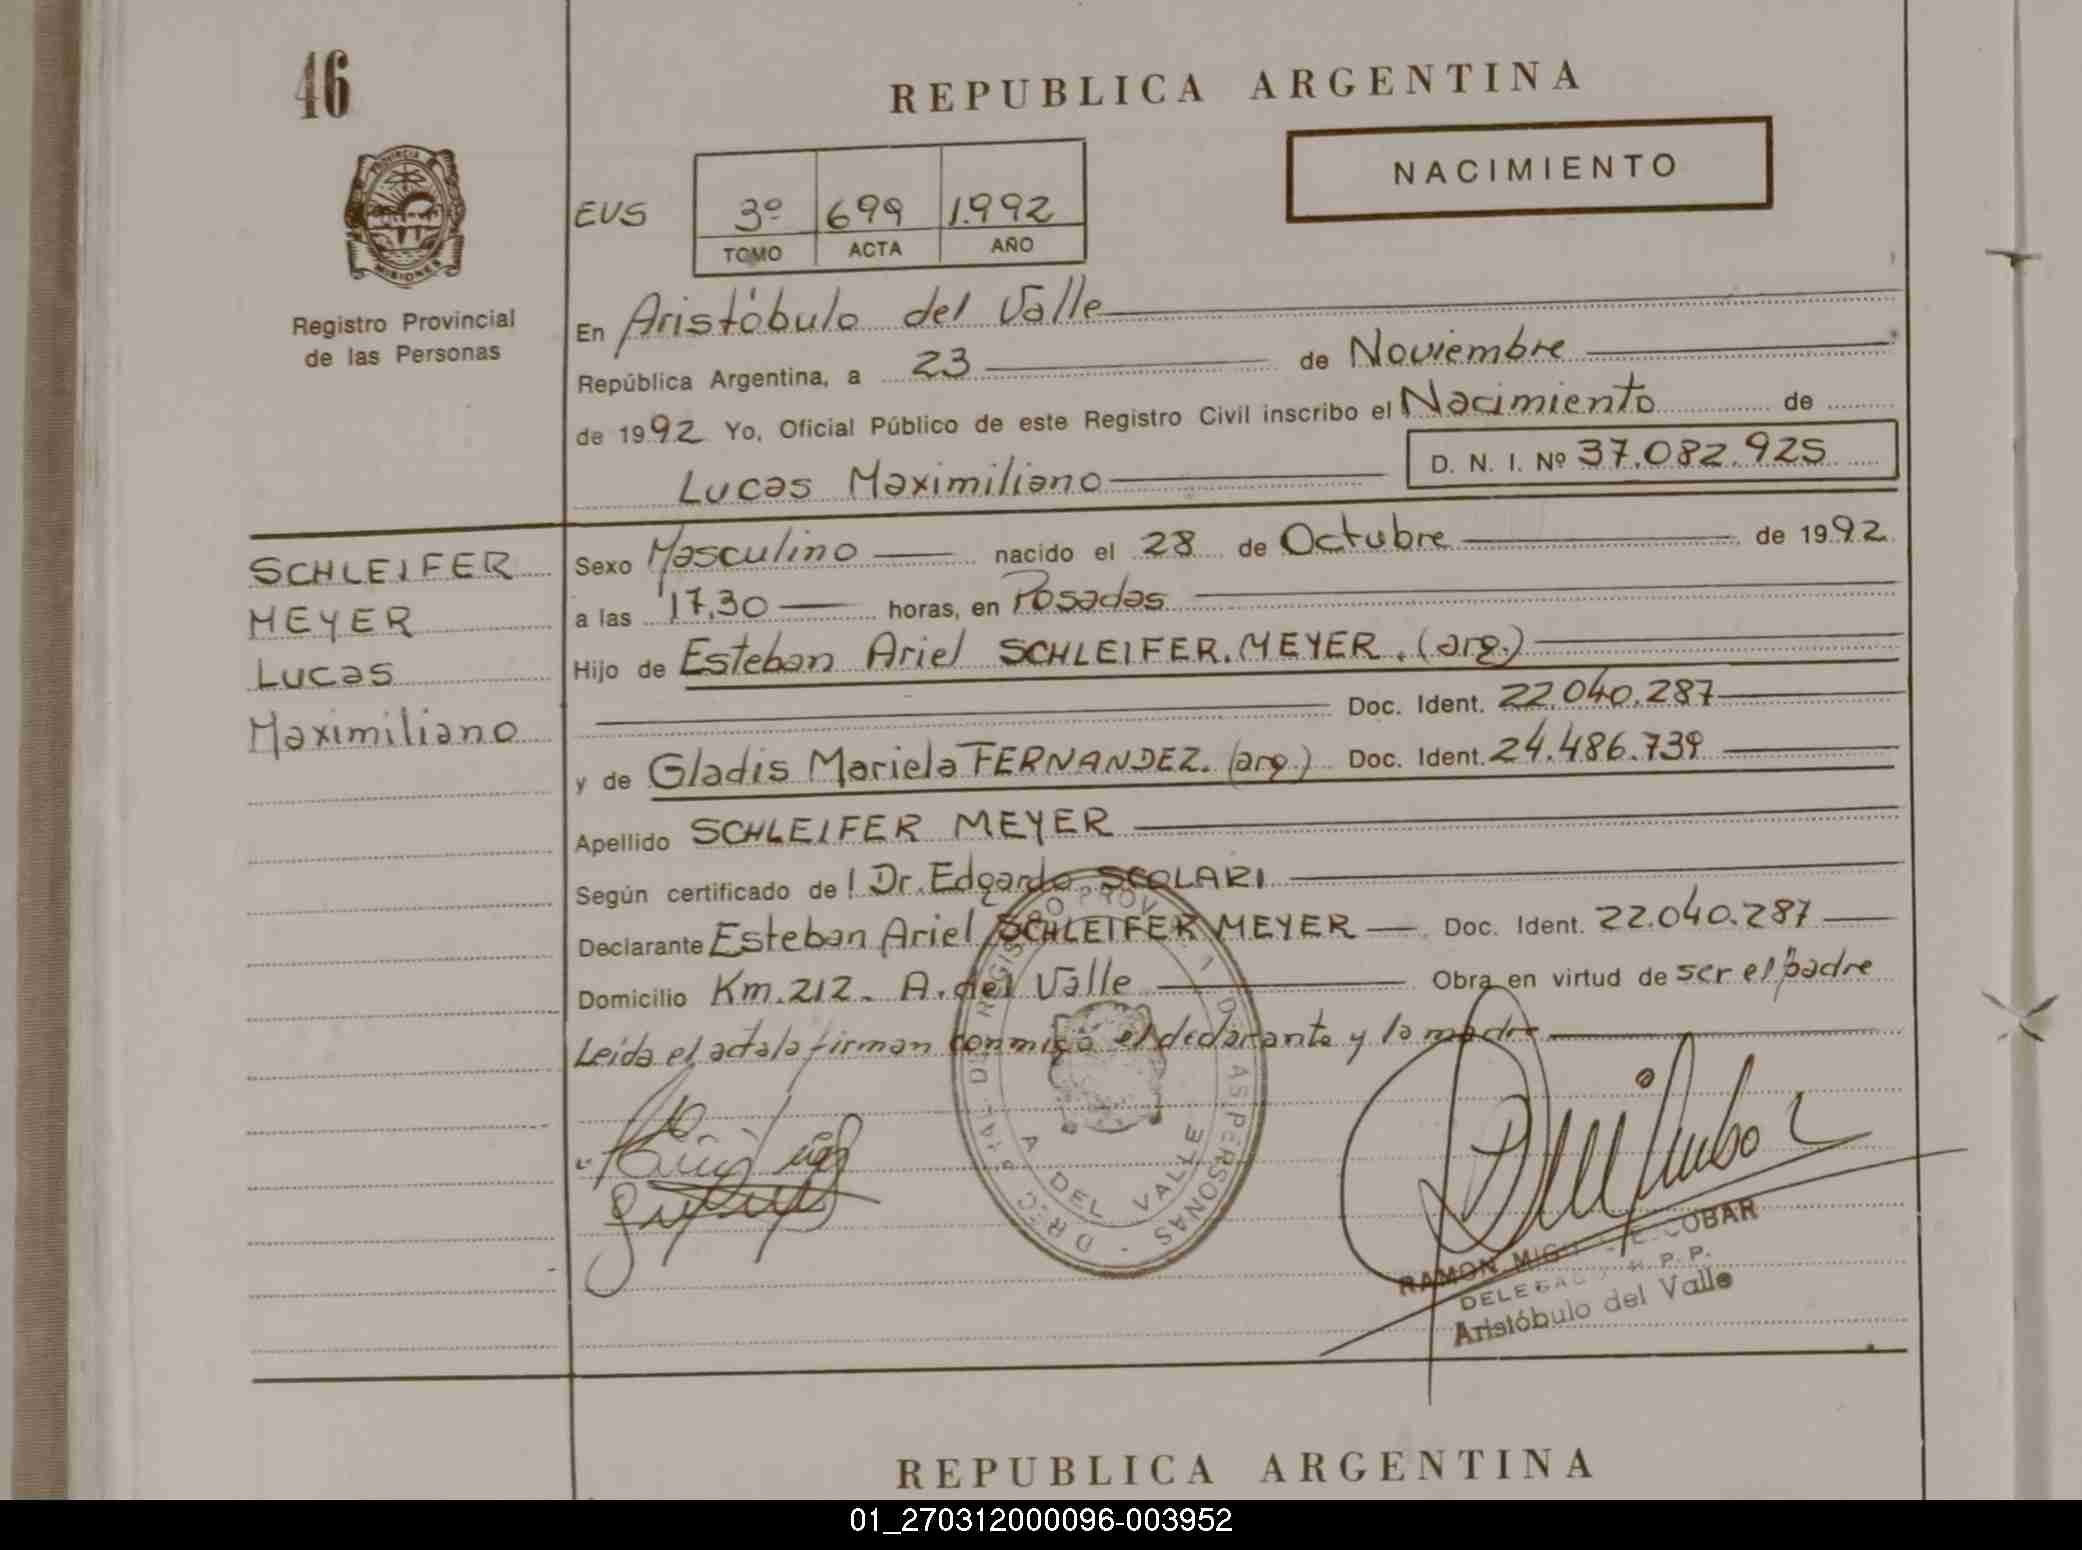 46
REPUBLICA ARGENTINA
NACIMIENTO
PROVINCIA
MISIONES
Registro Provincial
de las Personas
EUS
3º 699 1.992
TOMO ACTA AÑO
En Aristóbulo del Valle
República Argentina, a 23 de Noviembre
de 1992 Yo, Oficial Público de este Registro Civil inscribo el Nacimiento de
Lucas Maximiliano D. N. I. Nº 37.082.925
SCHLEIFER
MEYER
Lucas
Maximiliano
Sexo Masculino nacido el 28 de Octubre de 1992
a las 17,30 horas, en Posadas
Hijo de Esteban Ariel SCHLEIFER.MEYER. (arg.)
Doc. Ident. 22.040.287
y de Gladis Mariela FERNANDEZ. (arg.) Doc. Ident. 24.486.739
Apellido SCHLEIFER MEYER
Según certificado de Dr. Edgardo SCOLARI
Declarante Esteban Ariel SCHLEIFER MEYER Doc. Ident. 22.040.287
Domicilio Km.212. A. del Valle Obra en virtud de ser el padre
Leida el acta la firman conmigo el declarante y la madre
A DEL VALLE
PERSONAS
RAMON MIGUEL ESCOBAR
DELEGADO R. P. P.
Aristóbulo del Valle
REPUBLICA ARGENTINA
01_270312000096-003952